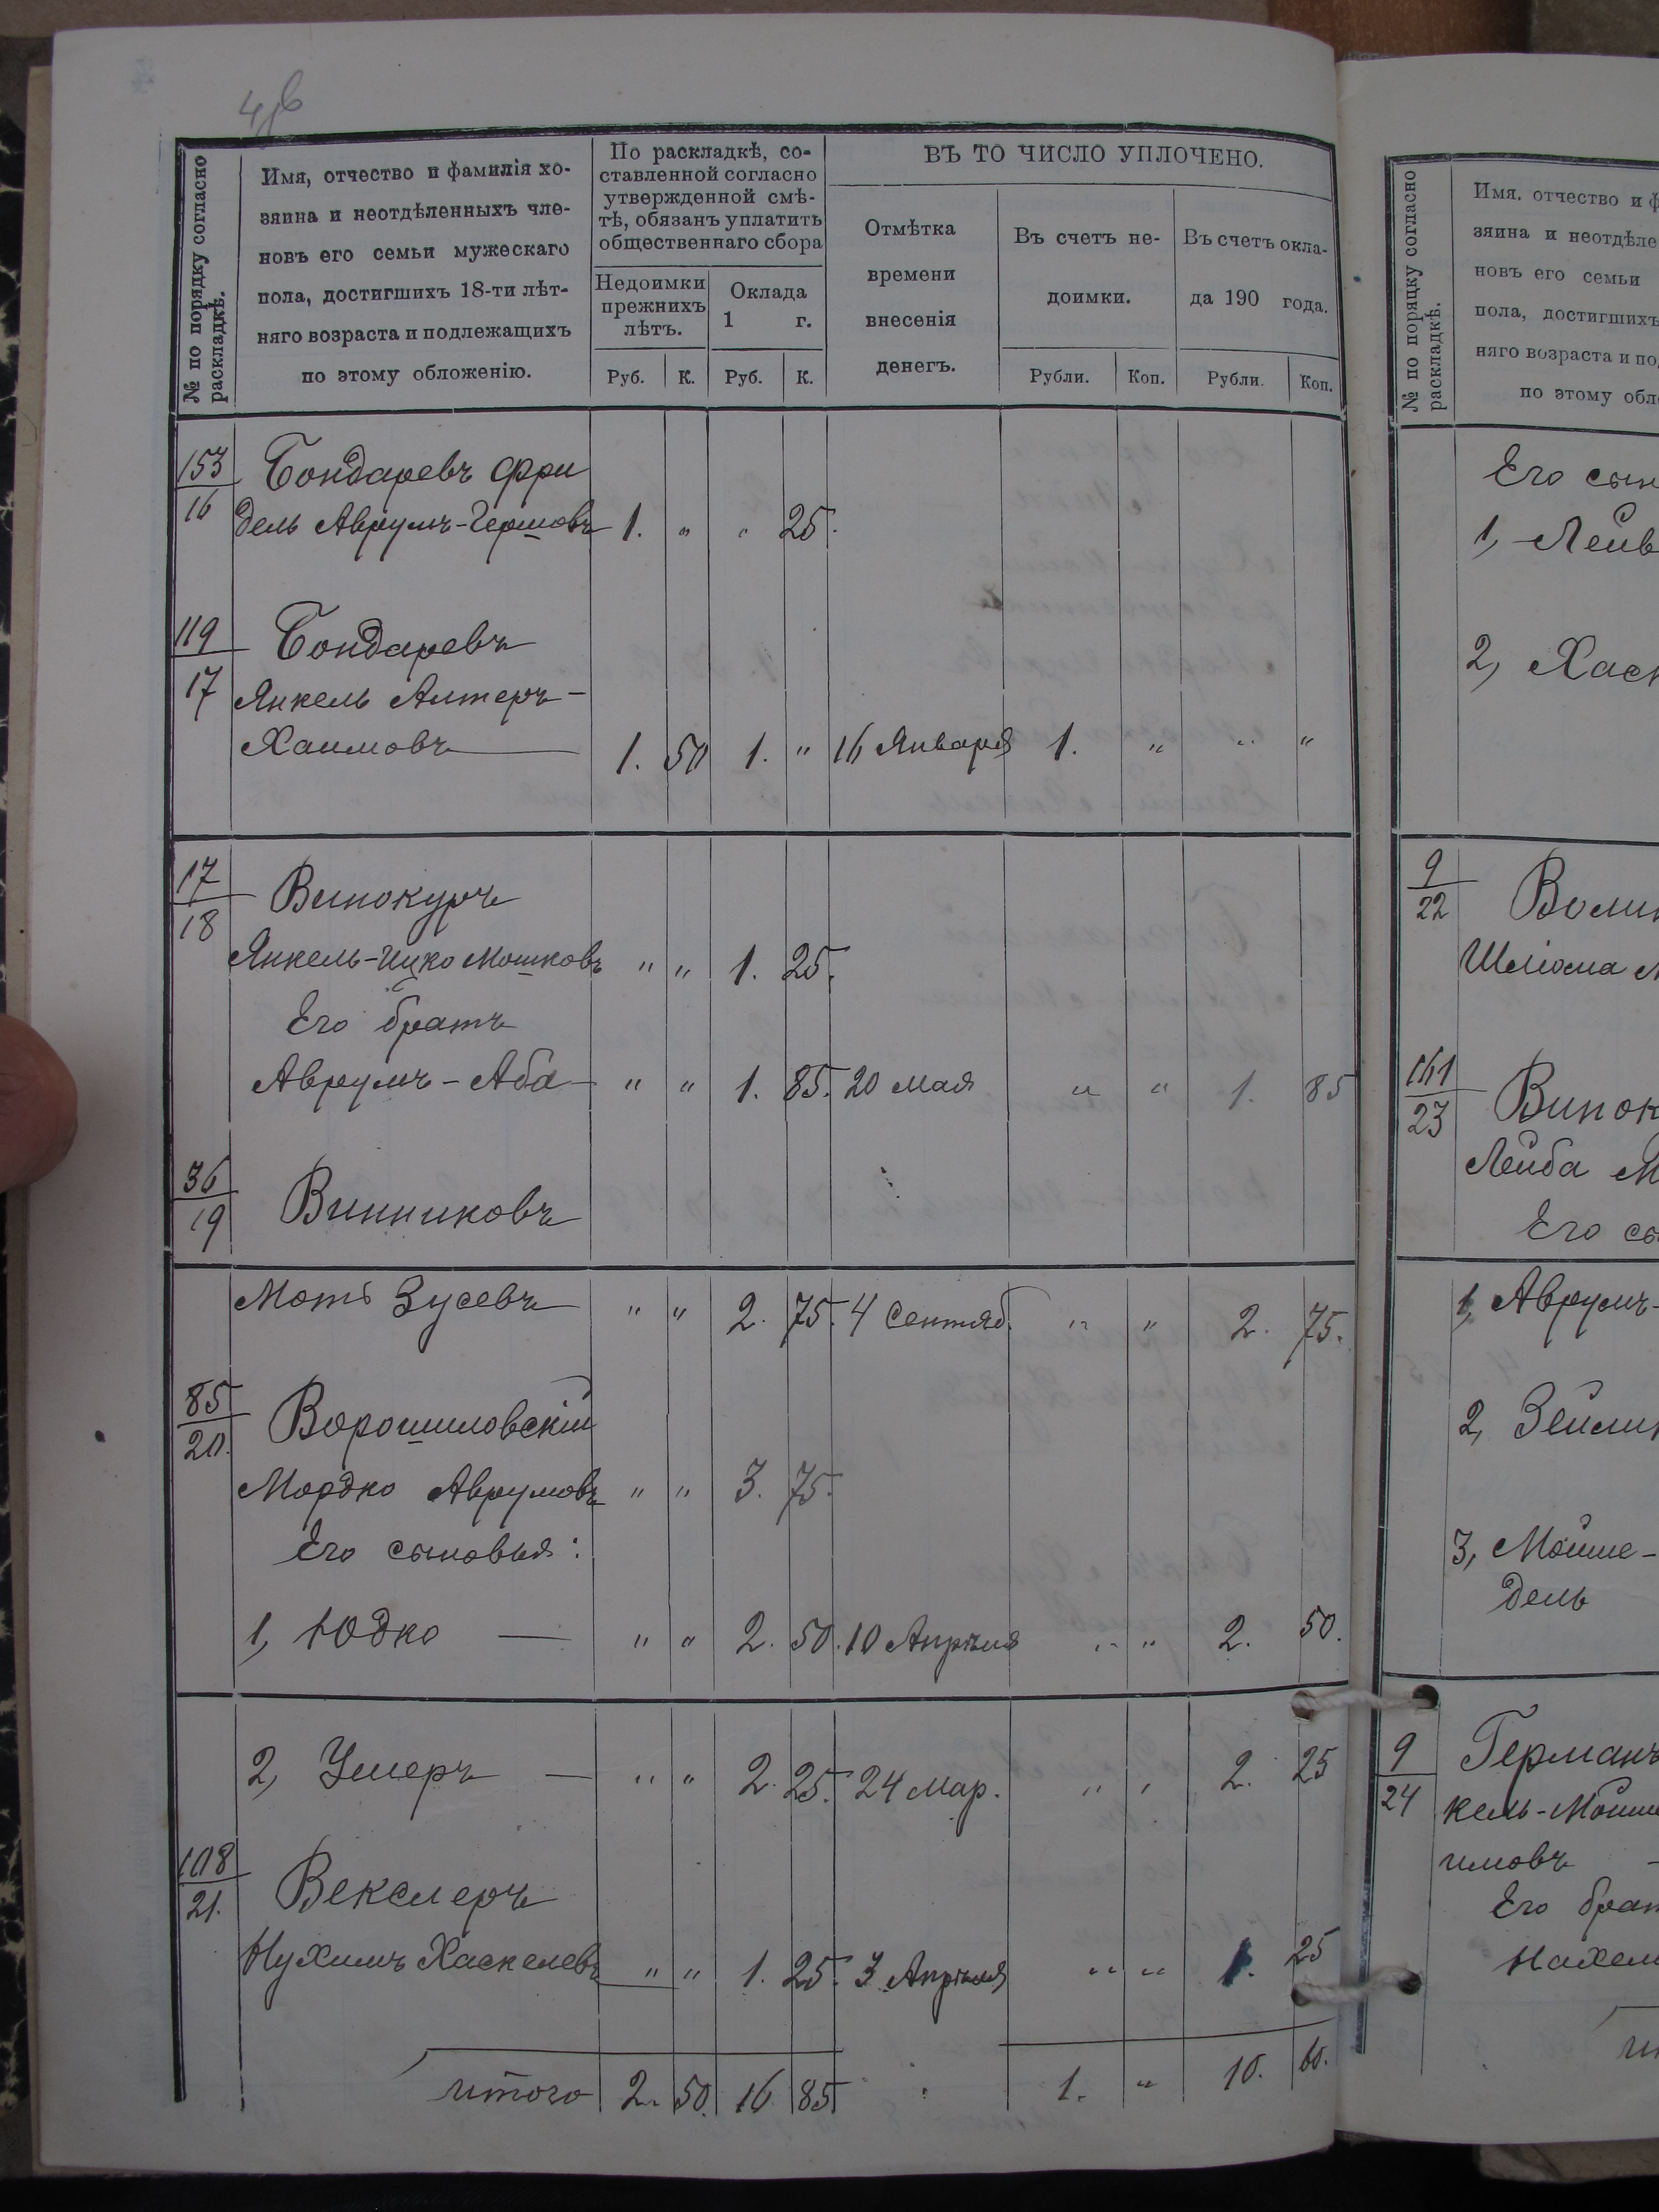 № по порядку согласно раскладкѣ.
Имя, отчество и фамилія хо-
зяина и неотдѣленныхъ чле-
новъ его семьи мужескаго
пола, достигшихъ 18-ти лѣт-
няго возраста и подлежащихъ
по этому обложенію.
По раскладкѣ, со-
ставленной согласно
утвержденной смѣ-
тѣ, обязанъ уплатить
общественнаго сбора
Недоимки
прежнихъ
лѣтъ.
Оклада
1 г.
Руб. К. Руб. К.
ВЪ ТО ЧИСЛО УПЛОЧЕНО.
Отмѣтка
времени
внесенія
денегъ.
Въ счетъ не-
доимки.
Въ счетъ окла-
да 190 года.
Рубли. Коп. Рубли. Коп.
153 Бондаревъ Фри
16 дель Аврумъ-Гершовъ 1. " " 25.
119 Бондаревъ
17 Янкель Алтеръ-
Хаимовъ 1. 50 1. " 16 Января 1. " " "
17 Винокуръ
18
Янкель-Ицко Мошковъ " " 1. 25.
Его братъ
Аврумъ-Аба " " 1. 85. 20 мая " " 1. 85
36 Винниковъ
19
Мотъ Зусевъ " " 2. 75. 4 Сентяб. " " 2. 75.
85 Ворошиловскій
20.
Мордко Аврумовъ " " 3. 75.
Его сыновья:
1, Юдко — " " 2. 50. 10 Апрѣля " " 2. 50.
2, Умеръ — " " 2. 25. 24 Мар. " " 2. 25
108 Векслеръ
21.
Нухимъ Хаскелевъ " " 1. 25. 3 Апрѣля " " 1. 25
итого 2. 50. 16 85 1. " 10. 60.
№ по порядку согласно раскладкѣ.
Имя. отчество и ф
зяина и неотдѣле
новъ его семьи
пола, достигшихъ
няго возраста и по
по этому обл
Его сын
1, Лейв
2, Хаск
9 Волин
22
Шліома
161 Винок
23
Лейба М
Его сы
1, Аврумъ-
2, Зейли
3, Мойше-
дель
9 Германъ
24 кель-Мойше
имовъ
Его брат
Нахем
ит